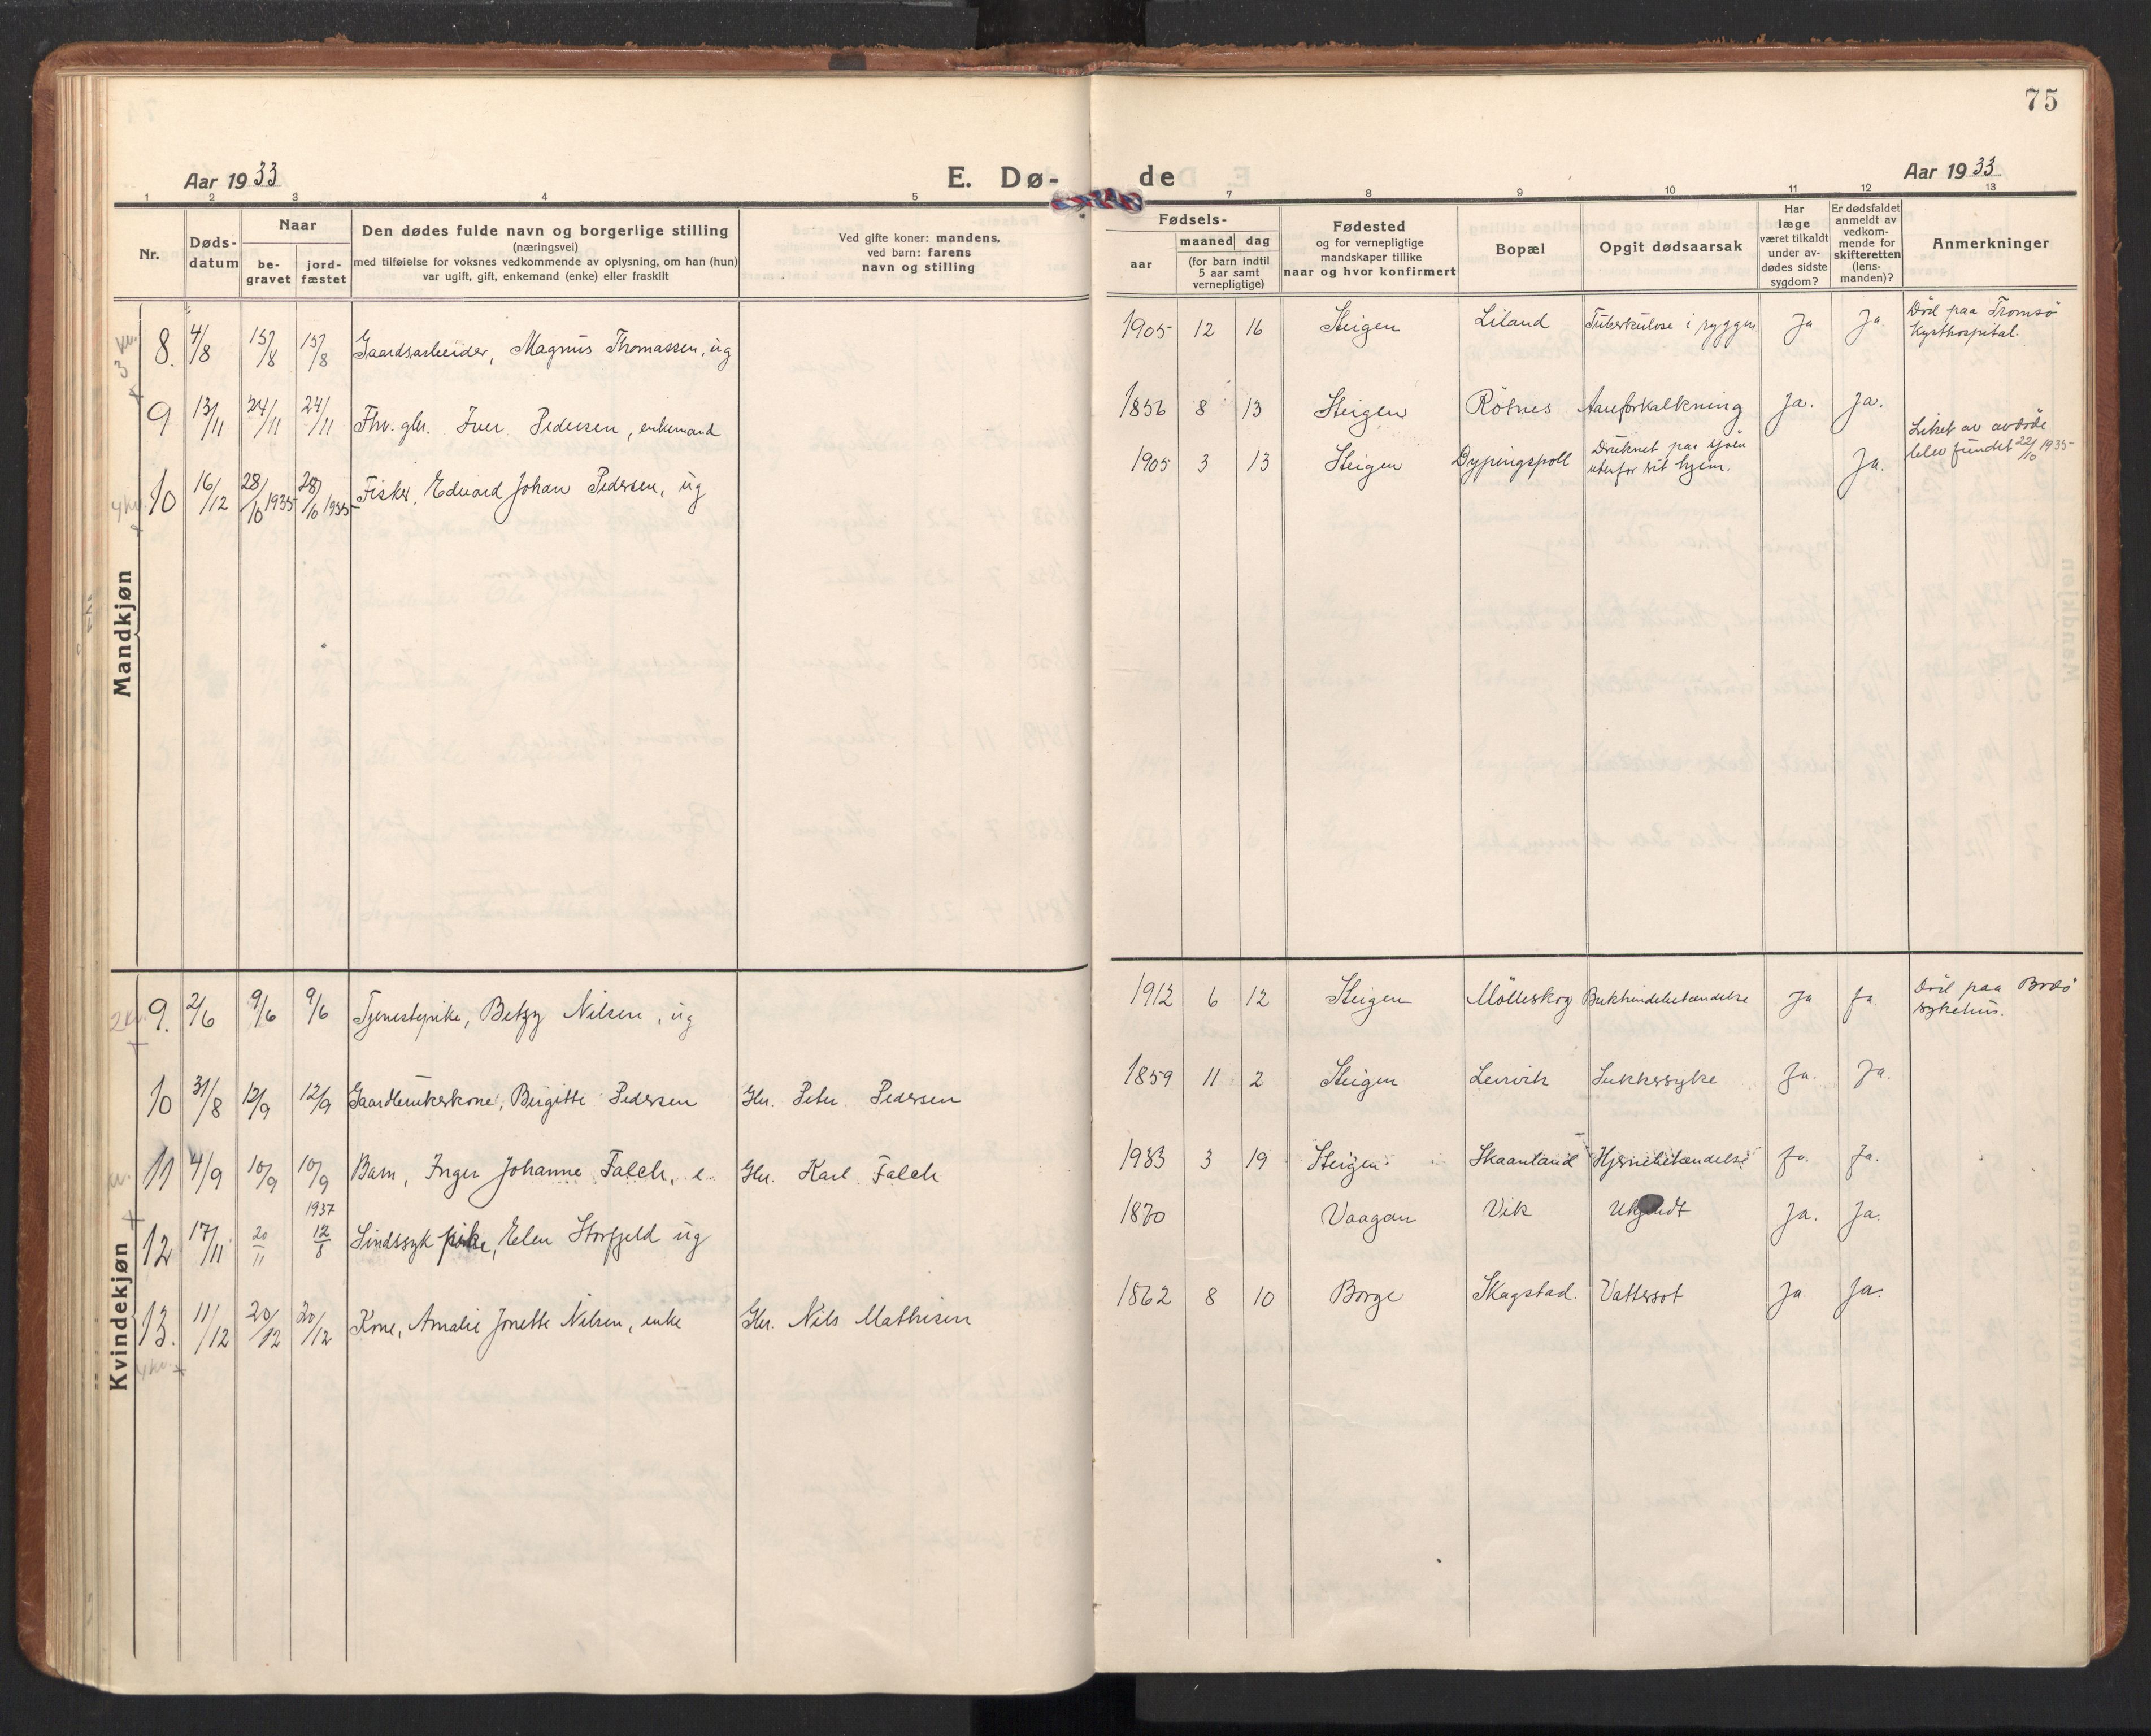 75
Aar 1933 E. Dø- de Aar 1933
1 2 3 4 5 7 8 9 10 11 12 13
Nr.
Døds-
datum
Naar
be-
gravet
jord-
fæstet
Den dødes fulde navn og borgerlige stilling
(næringsvei)
med tilføielse for voksnes vedkommende av oplysning, om han (hun)
var ugift, gift, enkemand (enke) eller fraskilt
Ved gifte koner: mandens,
ved barn: farens
navn og stilling
Fødsels-
aar
maaned dag
(for barn indtil
5 aar samt
vernepligtige)
Fødested
og for vernepligtige
mandskaper tillike
naar og hvor konfirmert
Bopæl
Opgit dødsaarsak
Har
læge
været tilkaldt
under av-
dødes sidste
sygdom?
Er dødsfaldet
anmeldt av
vedkom-
mende for
skifteretten
(lens-
manden)?
Anmerkninger
Mandkjøn
3 kv.
8. 4/8 15/8 15/8 Gaardsarbeider, Magnus Thomassen, ug 1905 12 16 Steigen Liland Tuberkulose i ryggen Ja Ja. Död paa Tromsö
Kysthospital.
9 13/11 24/11 24/11 Fhv. gbr. Iver Pedersen, enkemand 1856 8 13 Steigen Rötnes Aareforkalkning Ja. Ja.
4 kv.
10 16/12 28/10 1935 28/10 1935 Fisker, Edvard Johan Pedersen, ug 1905 3 13 Steigen Dypingspoll Druknet paa sjöen
utenfor sit hjem. Ja. Liket av avdöde
blev fundet 22/10 1935
Kvindekjøn
2 kv.
9. 2/6 9/6 9/6 Tjenestepike, Betzy Nilsen, ug 1912 6 12 Steigen Mölleskog Bukhindebetændelse Ja Ja Död paa Bodö
sykehus.
10 31/8 12/9 12/9 Gaardbrukerkone, Birgitte Pedersen Gbr. Peter Pedersen 1859 11 2 Steigen Leirvik Sukkersyke Ja. Ja.
kv.
11 4/9 10/9 10/9 Barn, Inger Johanne Falch, e. Gbr. Karl Falch 1933 3 19 Steigen Skaanland Hjernebetændelse Ja. Ja.
1937
12 17/11 20/11 12/8 Sindssyk pike, Elen Storfjeld ug 1870 Vaagan Vik Ukjendt Ja. Ja.
13. 11/12 20/12 20/12 Kone, Amalie Jonette Nilsen, enke Gbr. Nils Mathisen 1862 8 10 Borge Skagstad. Vattersot Ja. Ja.
4 kv.